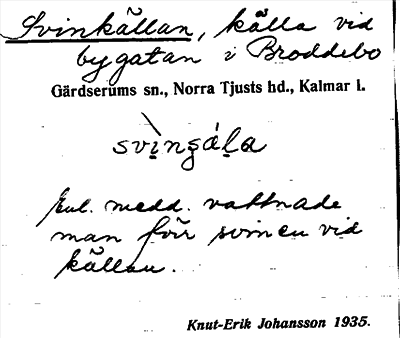 Svinkällan, källa vid
bygatan i Broddebo
Gärdserums sn., Norra Tjusts hd., Kalmar l.
enl. medd. vattnade
man förr svinen vid
källan.
Knut-Erik Johansson 1935.